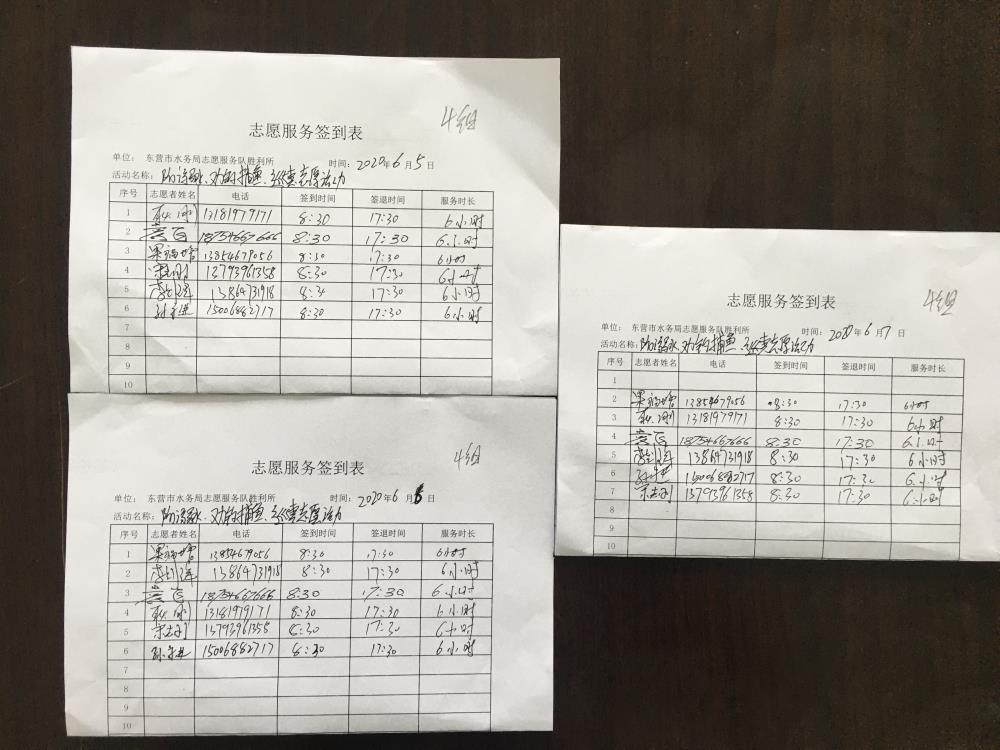 4组
志愿服务签到表
单位： 东营市水务局志愿服务队胜利所 时间：2020年6月5日
活动名称：防溺水、劝阻捕鱼、巡查志愿活动
序号 志愿者姓名 电话 签到时间 签退时间 服务时长
1 13181979171 8:30 17:30 6小时
2 18754667666 8:30 17:30 6小时
3 13854679056 8:30 17:30 6小时
4 13793961358 8:30 17:30 6小时
5 13864731918 8:30 17:30 6小时
6 15006882717 8:30 17:30 6小时
7
8
9
10
4组
志愿服务签到表
单位： 东营市水务局志愿服务队胜利所 时间：2020年6月6日
活动名称：防溺水、劝阻捕鱼、巡查志愿活动
序号 志愿者姓名 电话 签到时间 签退时间 服务时长
1 13854679056 8:30 17:30 6小时
2 13864731918 8:30 17:30 6小时
3 18754667666 8:30 17:30 6小时
4 13181979171 8:30 17:30 6小时
5 13793961358 8:30 17:30 6小时
6 15006882717 8:30 17:30 6小时
7
8
9
10
4组
志愿服务签到表
单位： 东营市水务局志愿服务队胜利所 时间：2020年6月7日
活动名称：防溺水、劝阻捕鱼、巡查志愿活动
序号 志愿者姓名 电话 签到时间 签退时间 服务时长
1
2 13854679056 8:30 17:30 6小时
3 13181979171 8:30 17:30 6小时
4 18754667666 8:30 17:30 6小时
5 13864731918 8:30 17:30 6小时
6 15006882717 8:30 17:30 6小时
7 13793961358 8:30 17:30 6小时
8
9
10